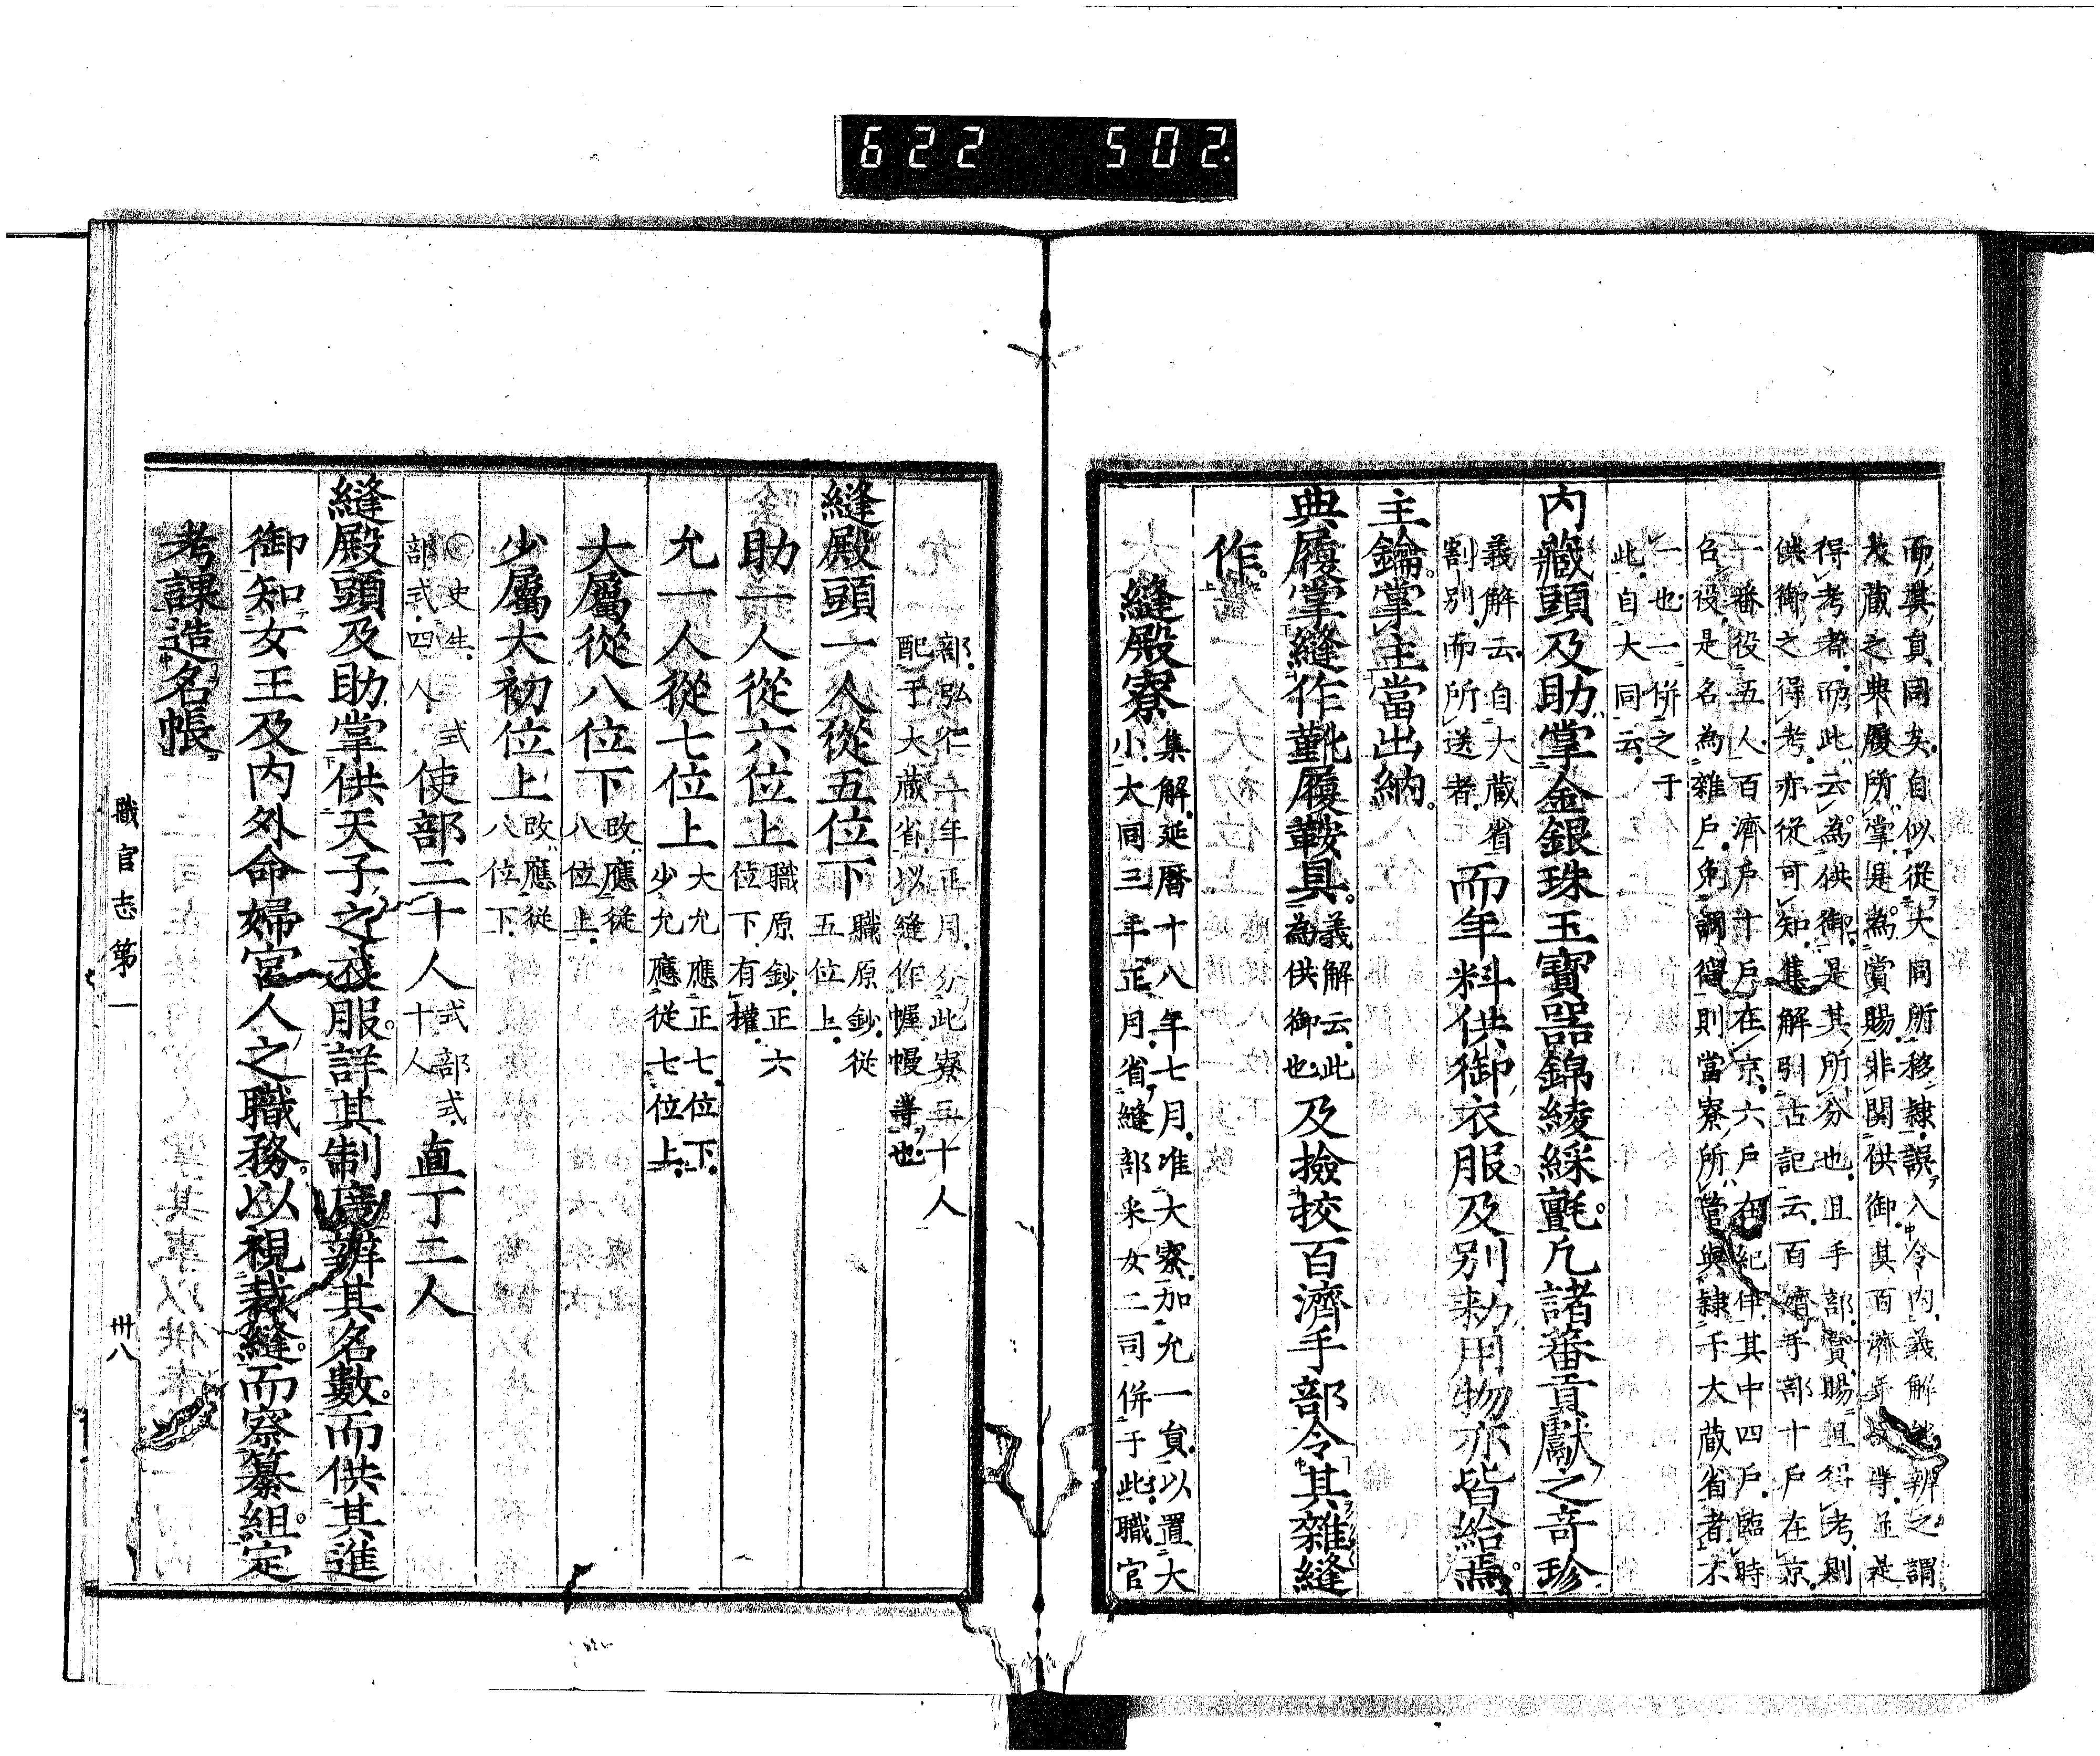 622 502
而其員同矣自似從大同所移隷誤入令内義解辨之謂
大蔵之典履所掌是為賞賜非関供御其百濟手等並是
得考者而此云為供御是其所分也且手部賞賜且得考則
供御之得考亦従可知集解引古記云百濟手部十戸在京
一番役五人百濟戸十戸在京六戸在紀伊其中四戸臨時
召役是名為雜戸免調徭則當寮所管與隷于大蔵省者不
一也一併之于
此自大同云
内藏頭及助掌金銀珠玉寶器錦綾綵氈凡諸蕃貢獻之奇珍
義解云自大蔵省
割別而所送者
而年料供御衣服及別勅用物亦皆給焉
主鑰掌主當出納
典履掌縫作靴履鞍具
義解云此
為供御也
及撿挍百濟手部令其雜縫
作
縫殿寮
集解延暦十八年七月准大寮加允一員以置大
小大同三年正月省縫部采女二司併于此職官
部弘仁十年正月分此寮五十人
配于大蔵省以縫作幄幔等也
縫殿頭一人從五位下
職原鈔従
五位上
助一人從六位上
職原鈔正六
位下有權
允一人從七位上
大允應正七位下
少允應従七位上
大屬從八位下
改應従
八位上
少屬大初位上
改應従
八位下
史生三式
部式四人
使部二十人
式部式
十人
直丁二人
縫殿頭及助掌供天子之衣服詳其制度辨其名數而供其進
御知女王及内外命婦宮人之職務以視裁縫而察纂組定
考課造名帳
職官志第一
卅八